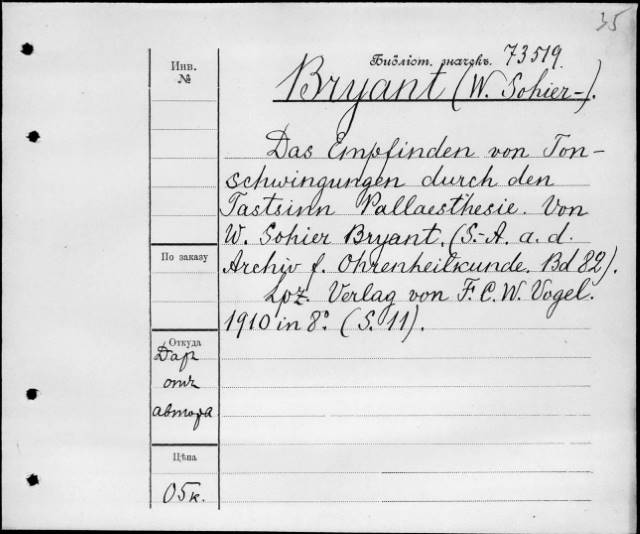 35
Библіот. значекъ. 73519.
Инв.
№
Bryant (W. Sohier-).
Das Empfinden von Ton-
schwingungen durch den
Tastsinn Pallaesthesie. Von
W. Sohier Bryant. (S.-A. a. d.
Archiv f. Ohrenheilkunde. Bd 82).
Lpz. Verlag von F. C. W. Vogel.
1910 in 8°. (S. 11).
По заказу
Откуда
Даръ
отъ
автора
Цѣна
05к.